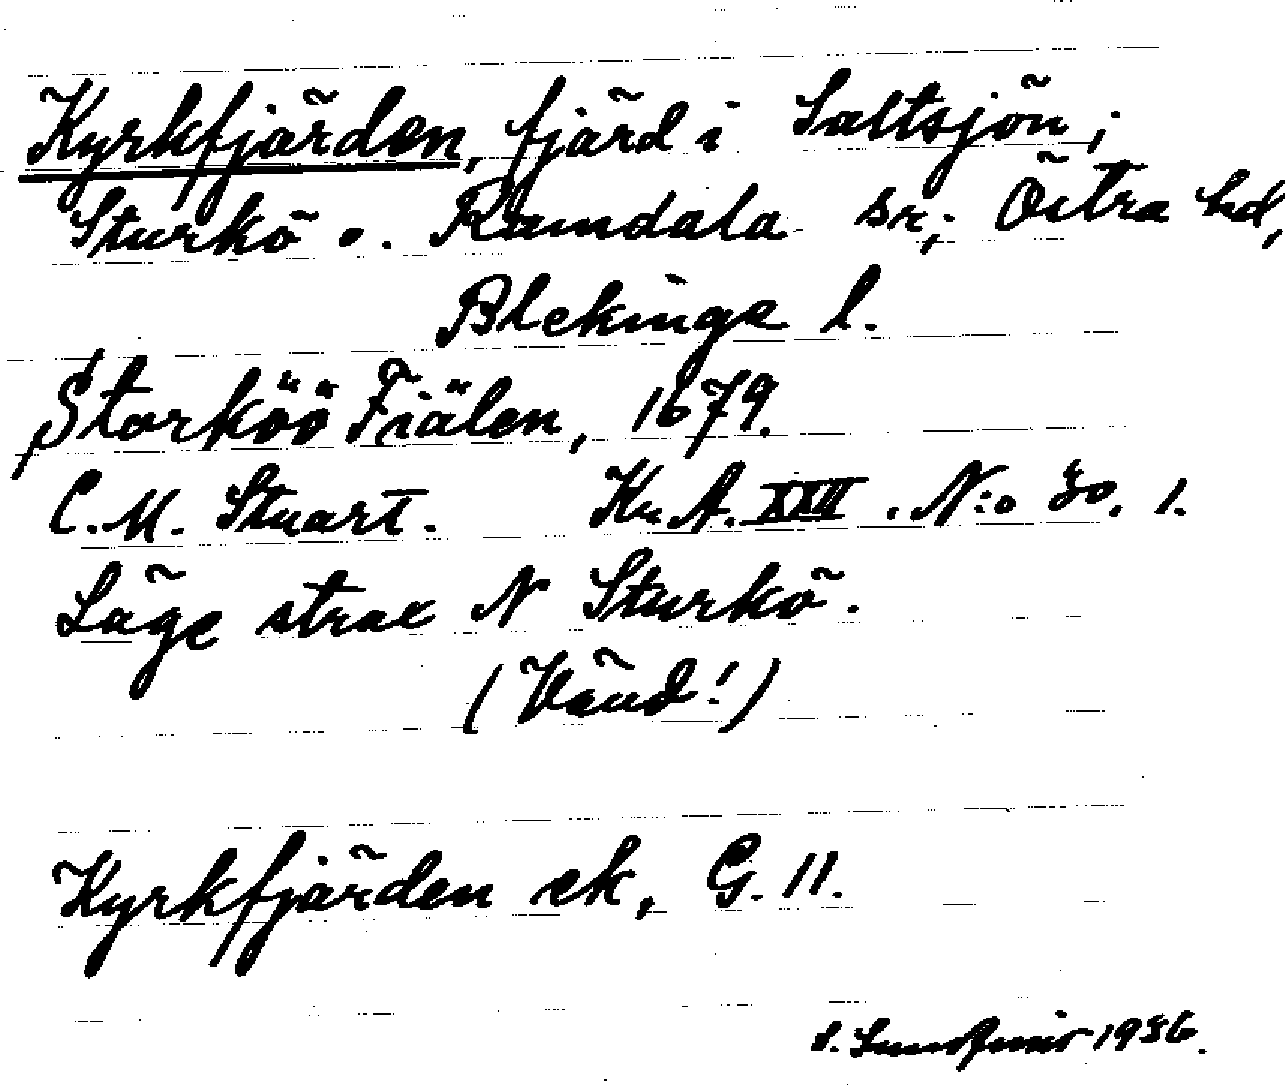 Kyrkfjärden, fjärd i Saltsjön;
Sturkö o. Ramdala sn; Östra hd,
Blekinge l.
Storköö Fiälen, 1679.
C.M. Stuart. Kr. A. XXII. N:o 30. 1.
Läge strax N Sturkö.
(Vänd!)
Kyrkfjärden ek, G. 11.
1936.